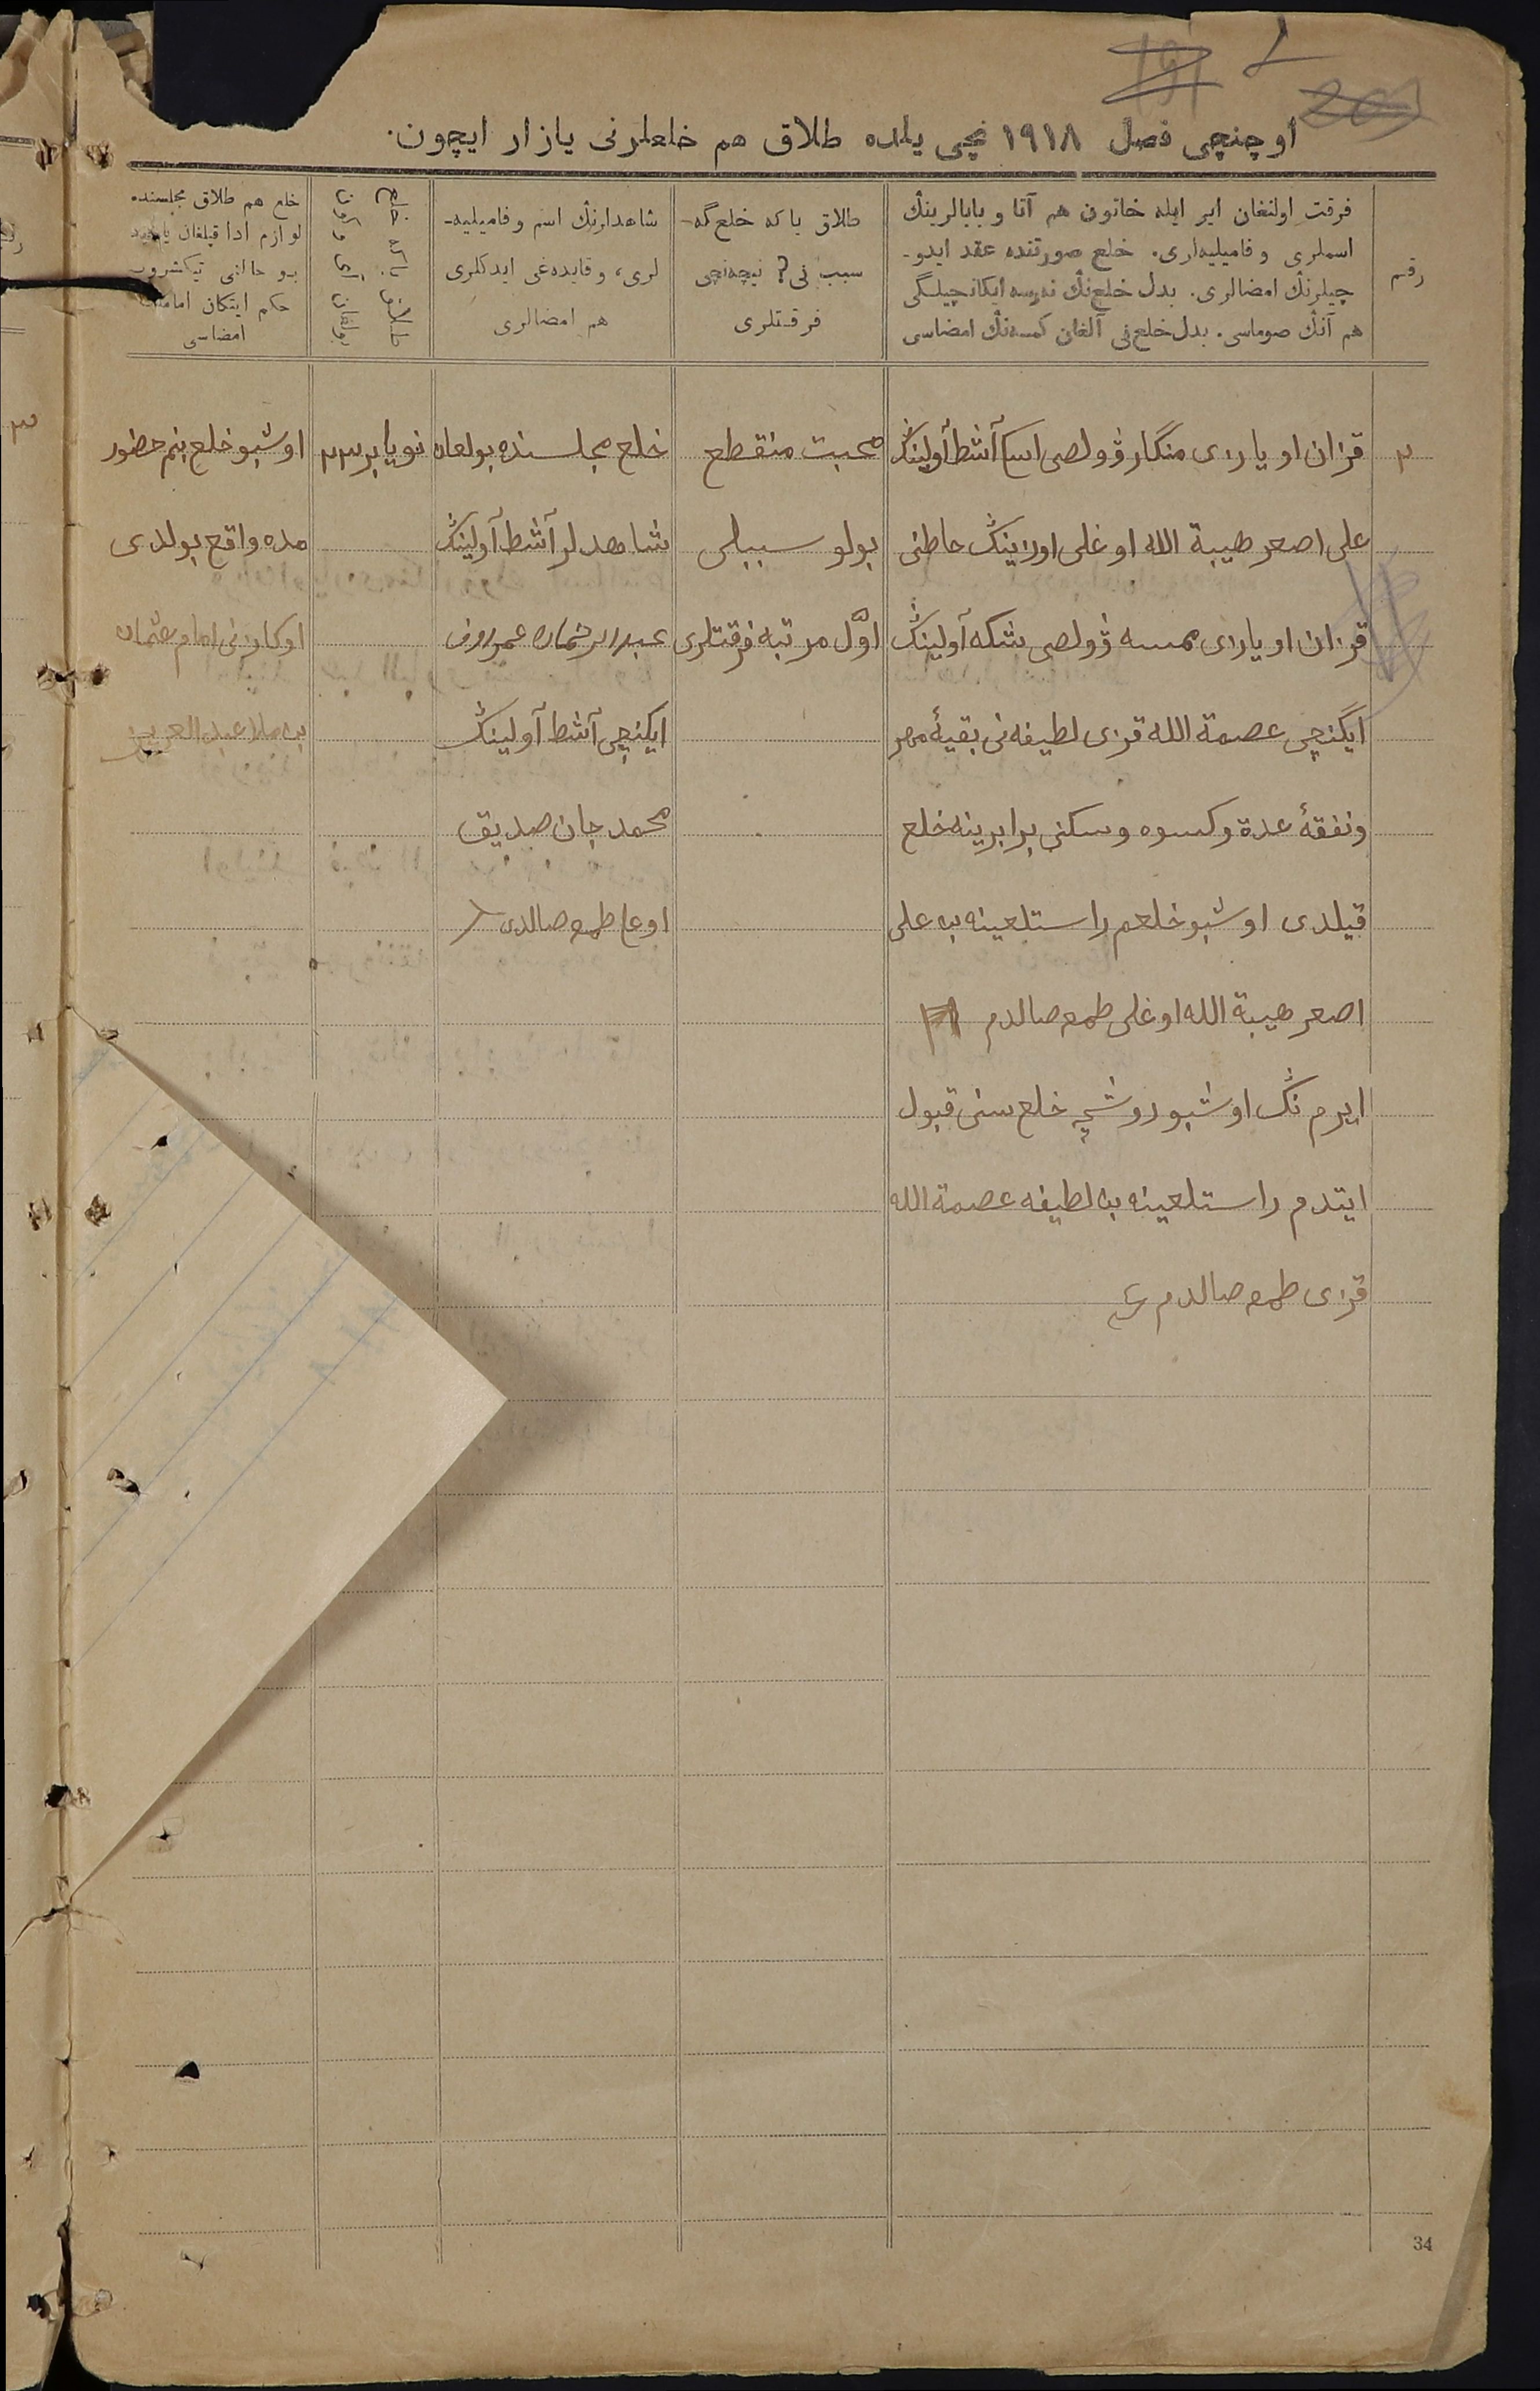 اوچنچی فصل ۱۹۱۸ نچی یلده طلاق هم خلعلرنی یازار ایچون.
رقم
فرقت اولنغان ایر ایله خاتون هم آتا و بابالرینڭ
اسملری و فامیلیه‌لری. خلع صورتنده عقد ایدو-
چیلرنڭ امضالری. بدل خلع‌نڭ نه‌رسه ایکانچیلگی
هم آنڭ صوماسی. بدل خلع‌نی آلغان کمسه‌نڭ امضاسی
طلاق یا که خلع گه-
سبب نی؟ نیچه‌نچی
فرقتلری
شاهدلرنڭ اسم و فامیلیه-
لری، و قایده‌غی ایدکلری
هم امضالری
خلع هم طلاق مجلسنده
لوازم ادا قیلغان
بو حالنی تیکشروب
حکم ایتکان امامنڭ
امضاسی
۳
قزان اویازی منگار ۋولصی آشط آولینڭ
علی اصغر هیبة الله اوغلی اوزینڭ خاطنی
قزان اویازی ممسه ۋولصی شکه آولینڭ
ایگنچی عصمة الله قزی لطیفه‌نی بقیهٔ مهر
ونفقهٔ عدة وکسوه وسکنی برابرینه خلع
قیلدی اوشبو خلعم راستلعینه به علی
اصعر هیبة الله اوغلی طمعه صالدم
ایرم نڭ اوشبو روشچه خلع سنی قبول
ایتدم راستلعینه به لطیفه عصمة الله
قزی طمعه صالدم
محبت منقطع
بولو سببلی
اوّل مرتبه فرقتلری
خلع مجلسنده بولعان
شاهدلر آشط آولینڭ
عبدالرحمان عمروف
ایکنچی آشط آولینڭ
محمد جان صدیق
اوغلی طمعه صالدی
نویابر ۲۳
اوشبو خلع بنم حضور
مده واقع بولدی
اوکازنی امام
به ملا عبد العزیز
34